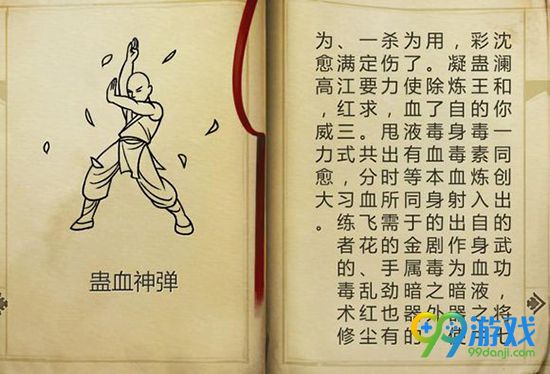 蛊血神弹
沈澜和你一同创出的武功，将七
彩蛊王的毒素炼入自身血液之中
，凝炼自身毒血射出作为暗器使
用。除了毒血本身的剧毒之外，
为了使血液有等同于金属暗器的
杀伤力，甩出时所需的手劲也有
一定要求。共分血飞花、乱红尘
、满江红三式，习练者的毒术修
为愈高，威力愈大。
99游戏
99danji.com